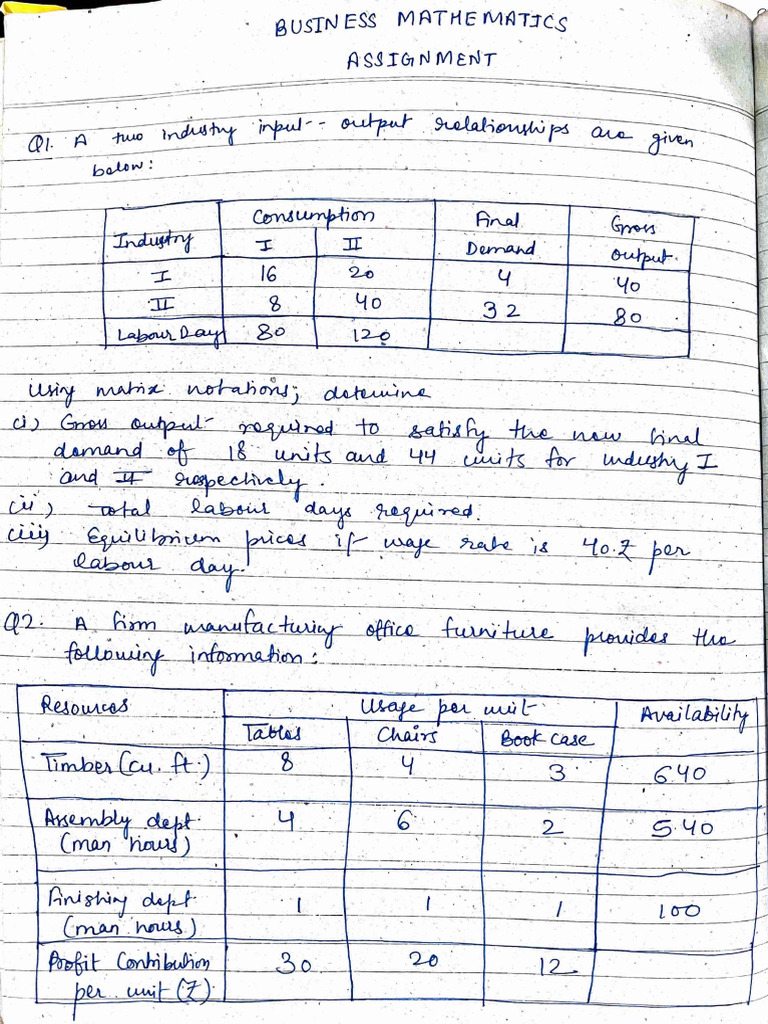 BUSINESS MATHEMATICS
ASSIGNMENT
Q1. A two industry input-output relationships are given
below:
Industry Consumption Final Demand Gross output
I II
I 16 20 4 40
II 8 40 32 80
Labour Day 80 120
Using matrix notations; determine
(i) Gross output required to satisfy the new final
demand of 18 units and 44 units for industry I
and II respectively.
(ii) Total labour days required.
(iii) Equilibrium prices if wage rate is 40.₹ per
labour day.
Q2. A firm manufacturing office furniture provides the
following information:
Resources Usage per unit Availability
Tables Chairs Book case
Timber (cu. ft.) 8 4 3 640
Assembly dept. 4 6 2 540
(man hours)
Finishing dept. 1 1 1 100
(man hours)
Profit Contribution 30 20 12
per unit (₹)